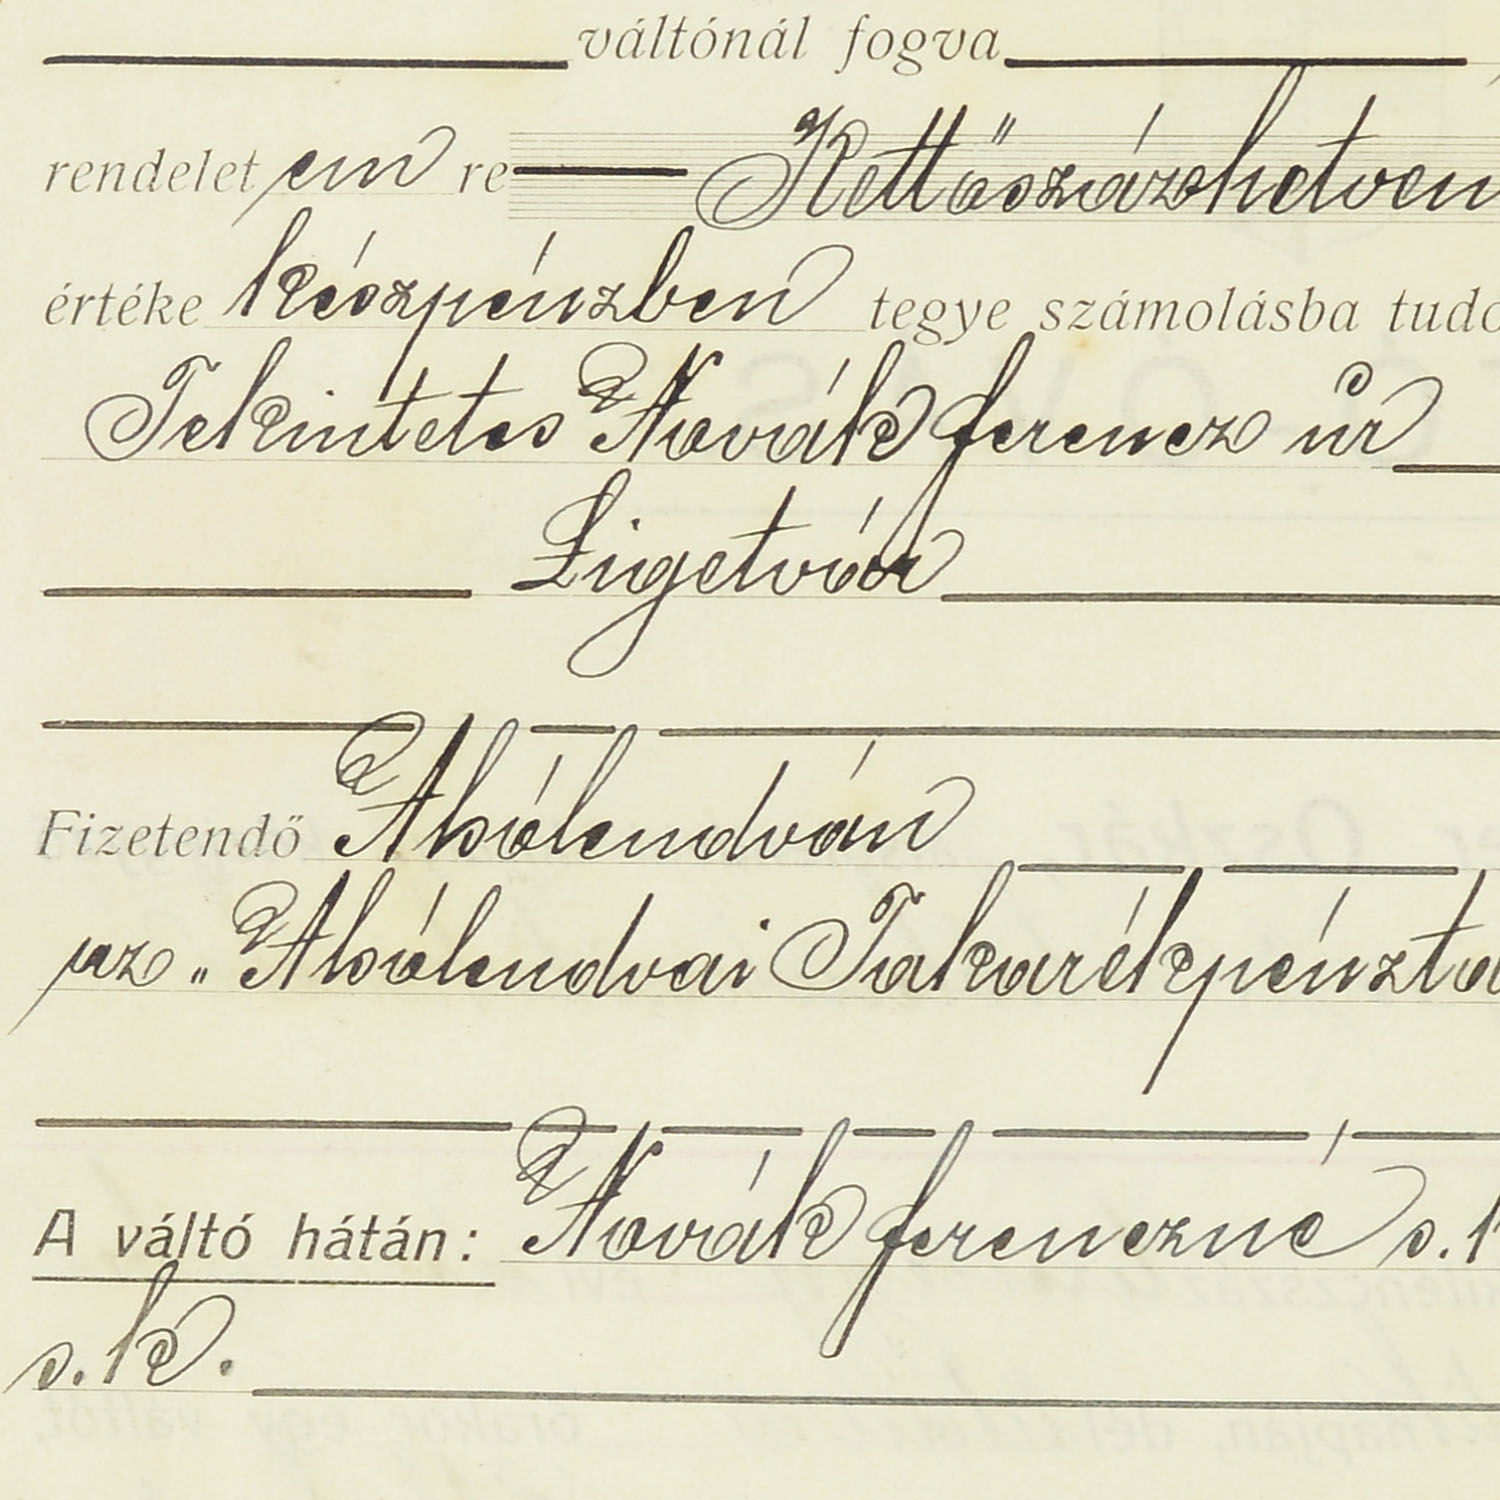 váltónál fogva
rendelet em re Kettőszázhetven
értéke készpénzben tegye számolásba tudo
Tekintetes Novák Ferencz úr
Ligetvár
Fizetendő Alsólendván
az „Alsólendvai Takarékpénzta
A váltó hátán: Novák Ferenczné s. k
s. k.